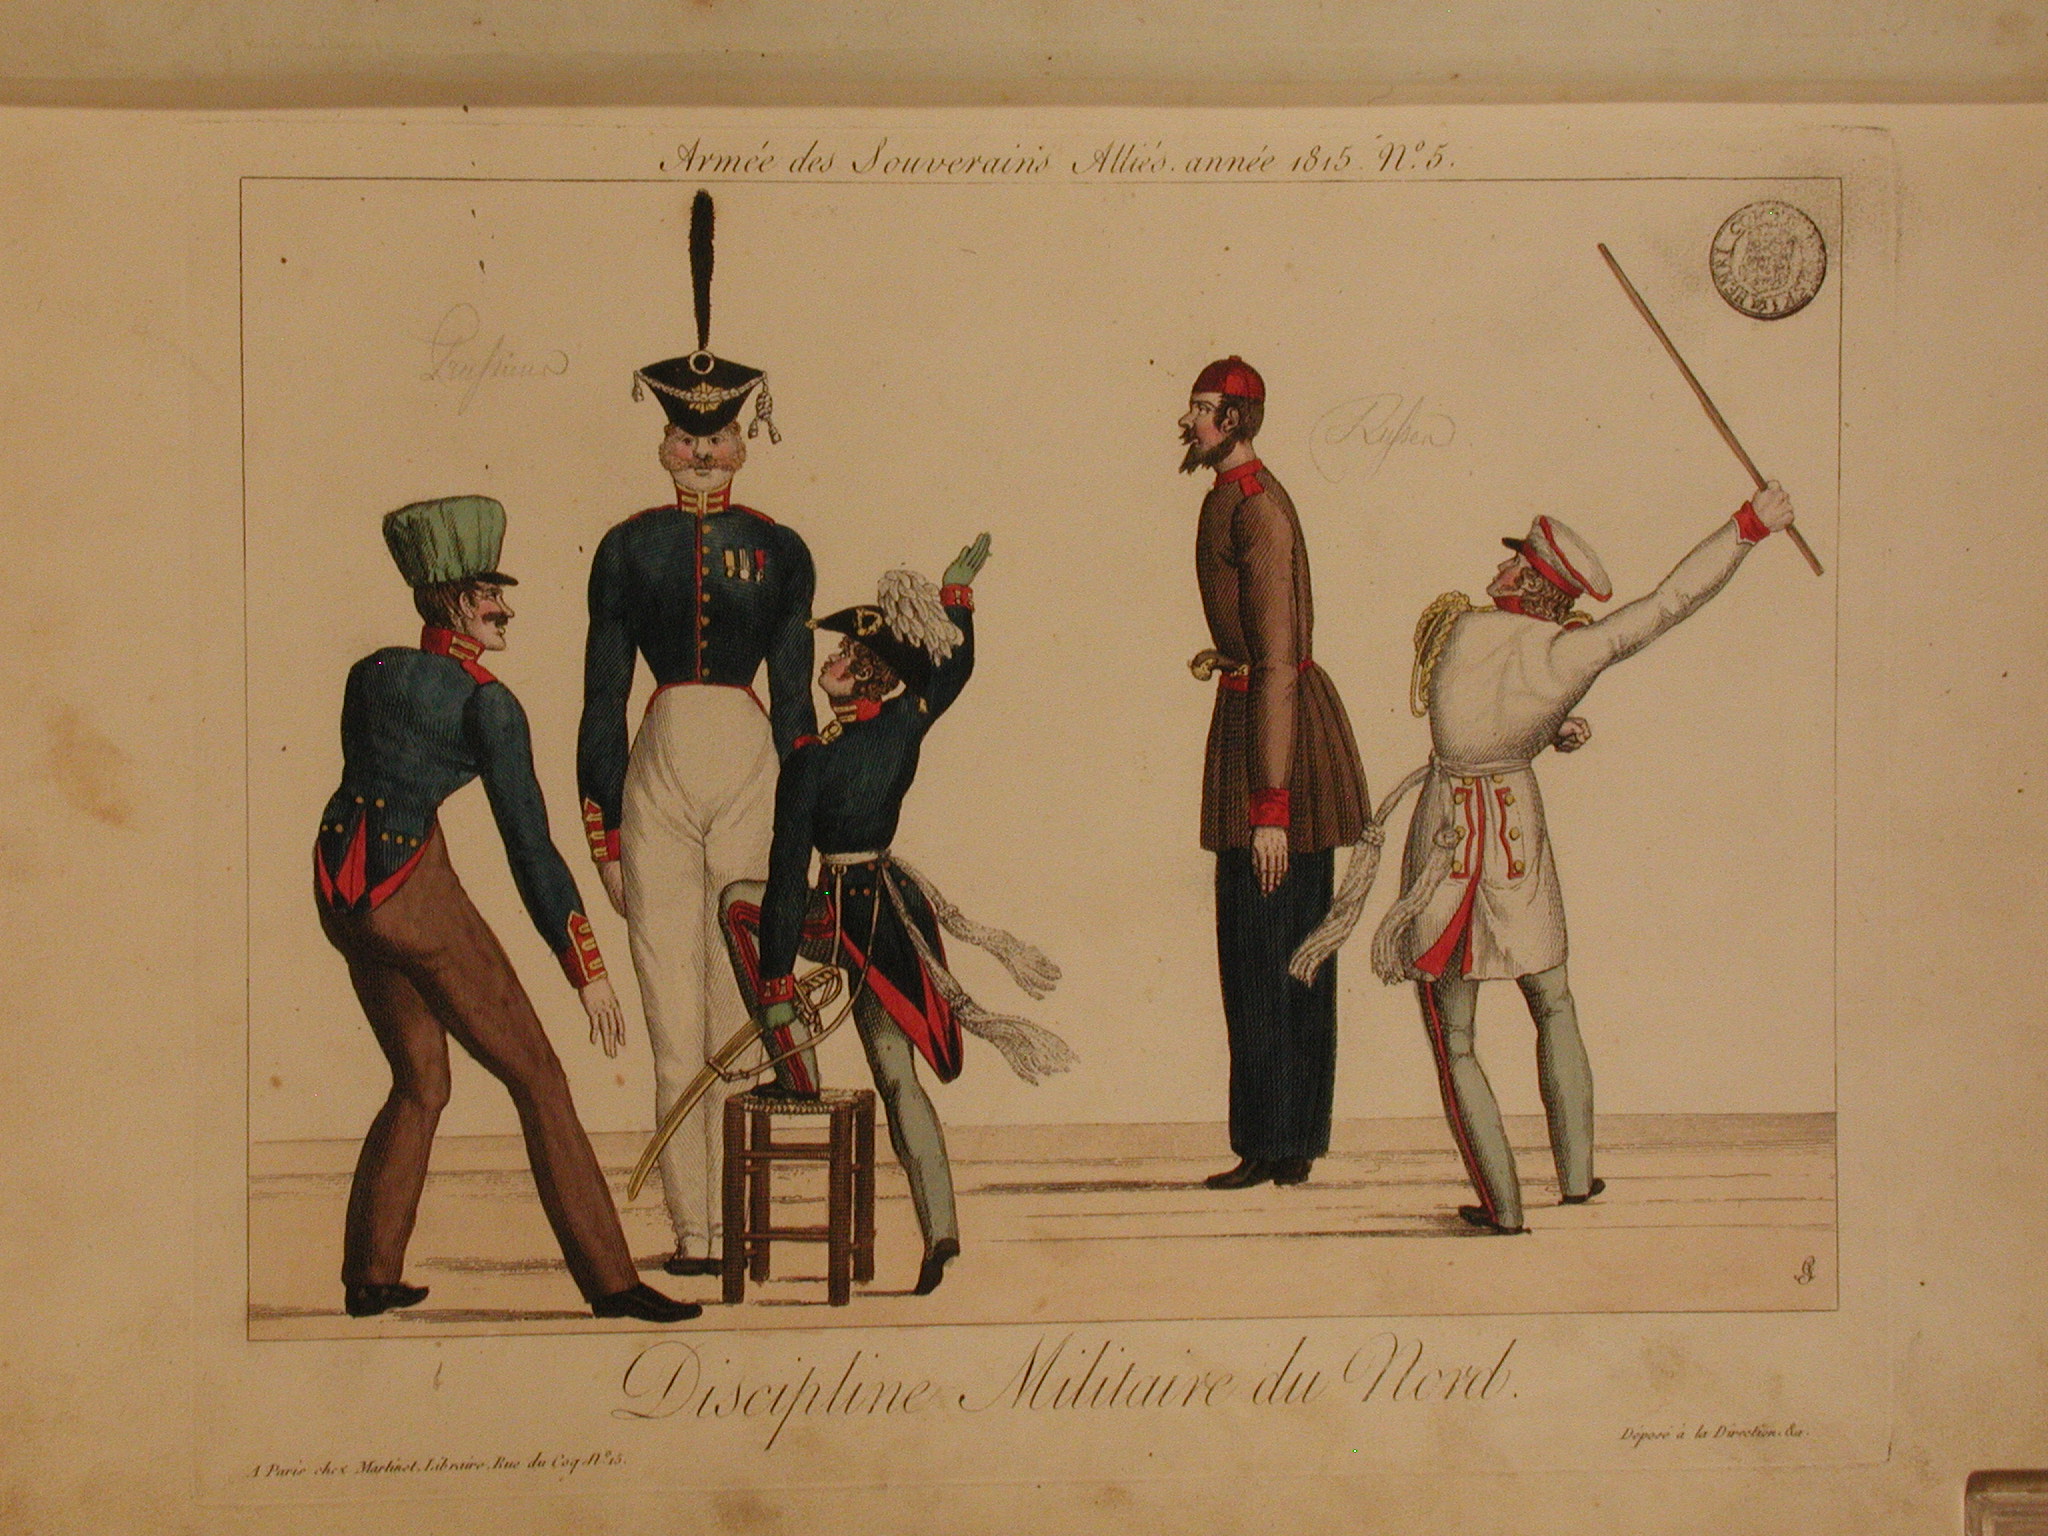 Armée des Souverains Alliés. année 1815. Nº. 5.
Preussen
Russen
Discipline Militaire du Nord.
A Paris chez Martinet, Libraire, Rue du Coq Nº 15.
Déposé à la Direction, &a.